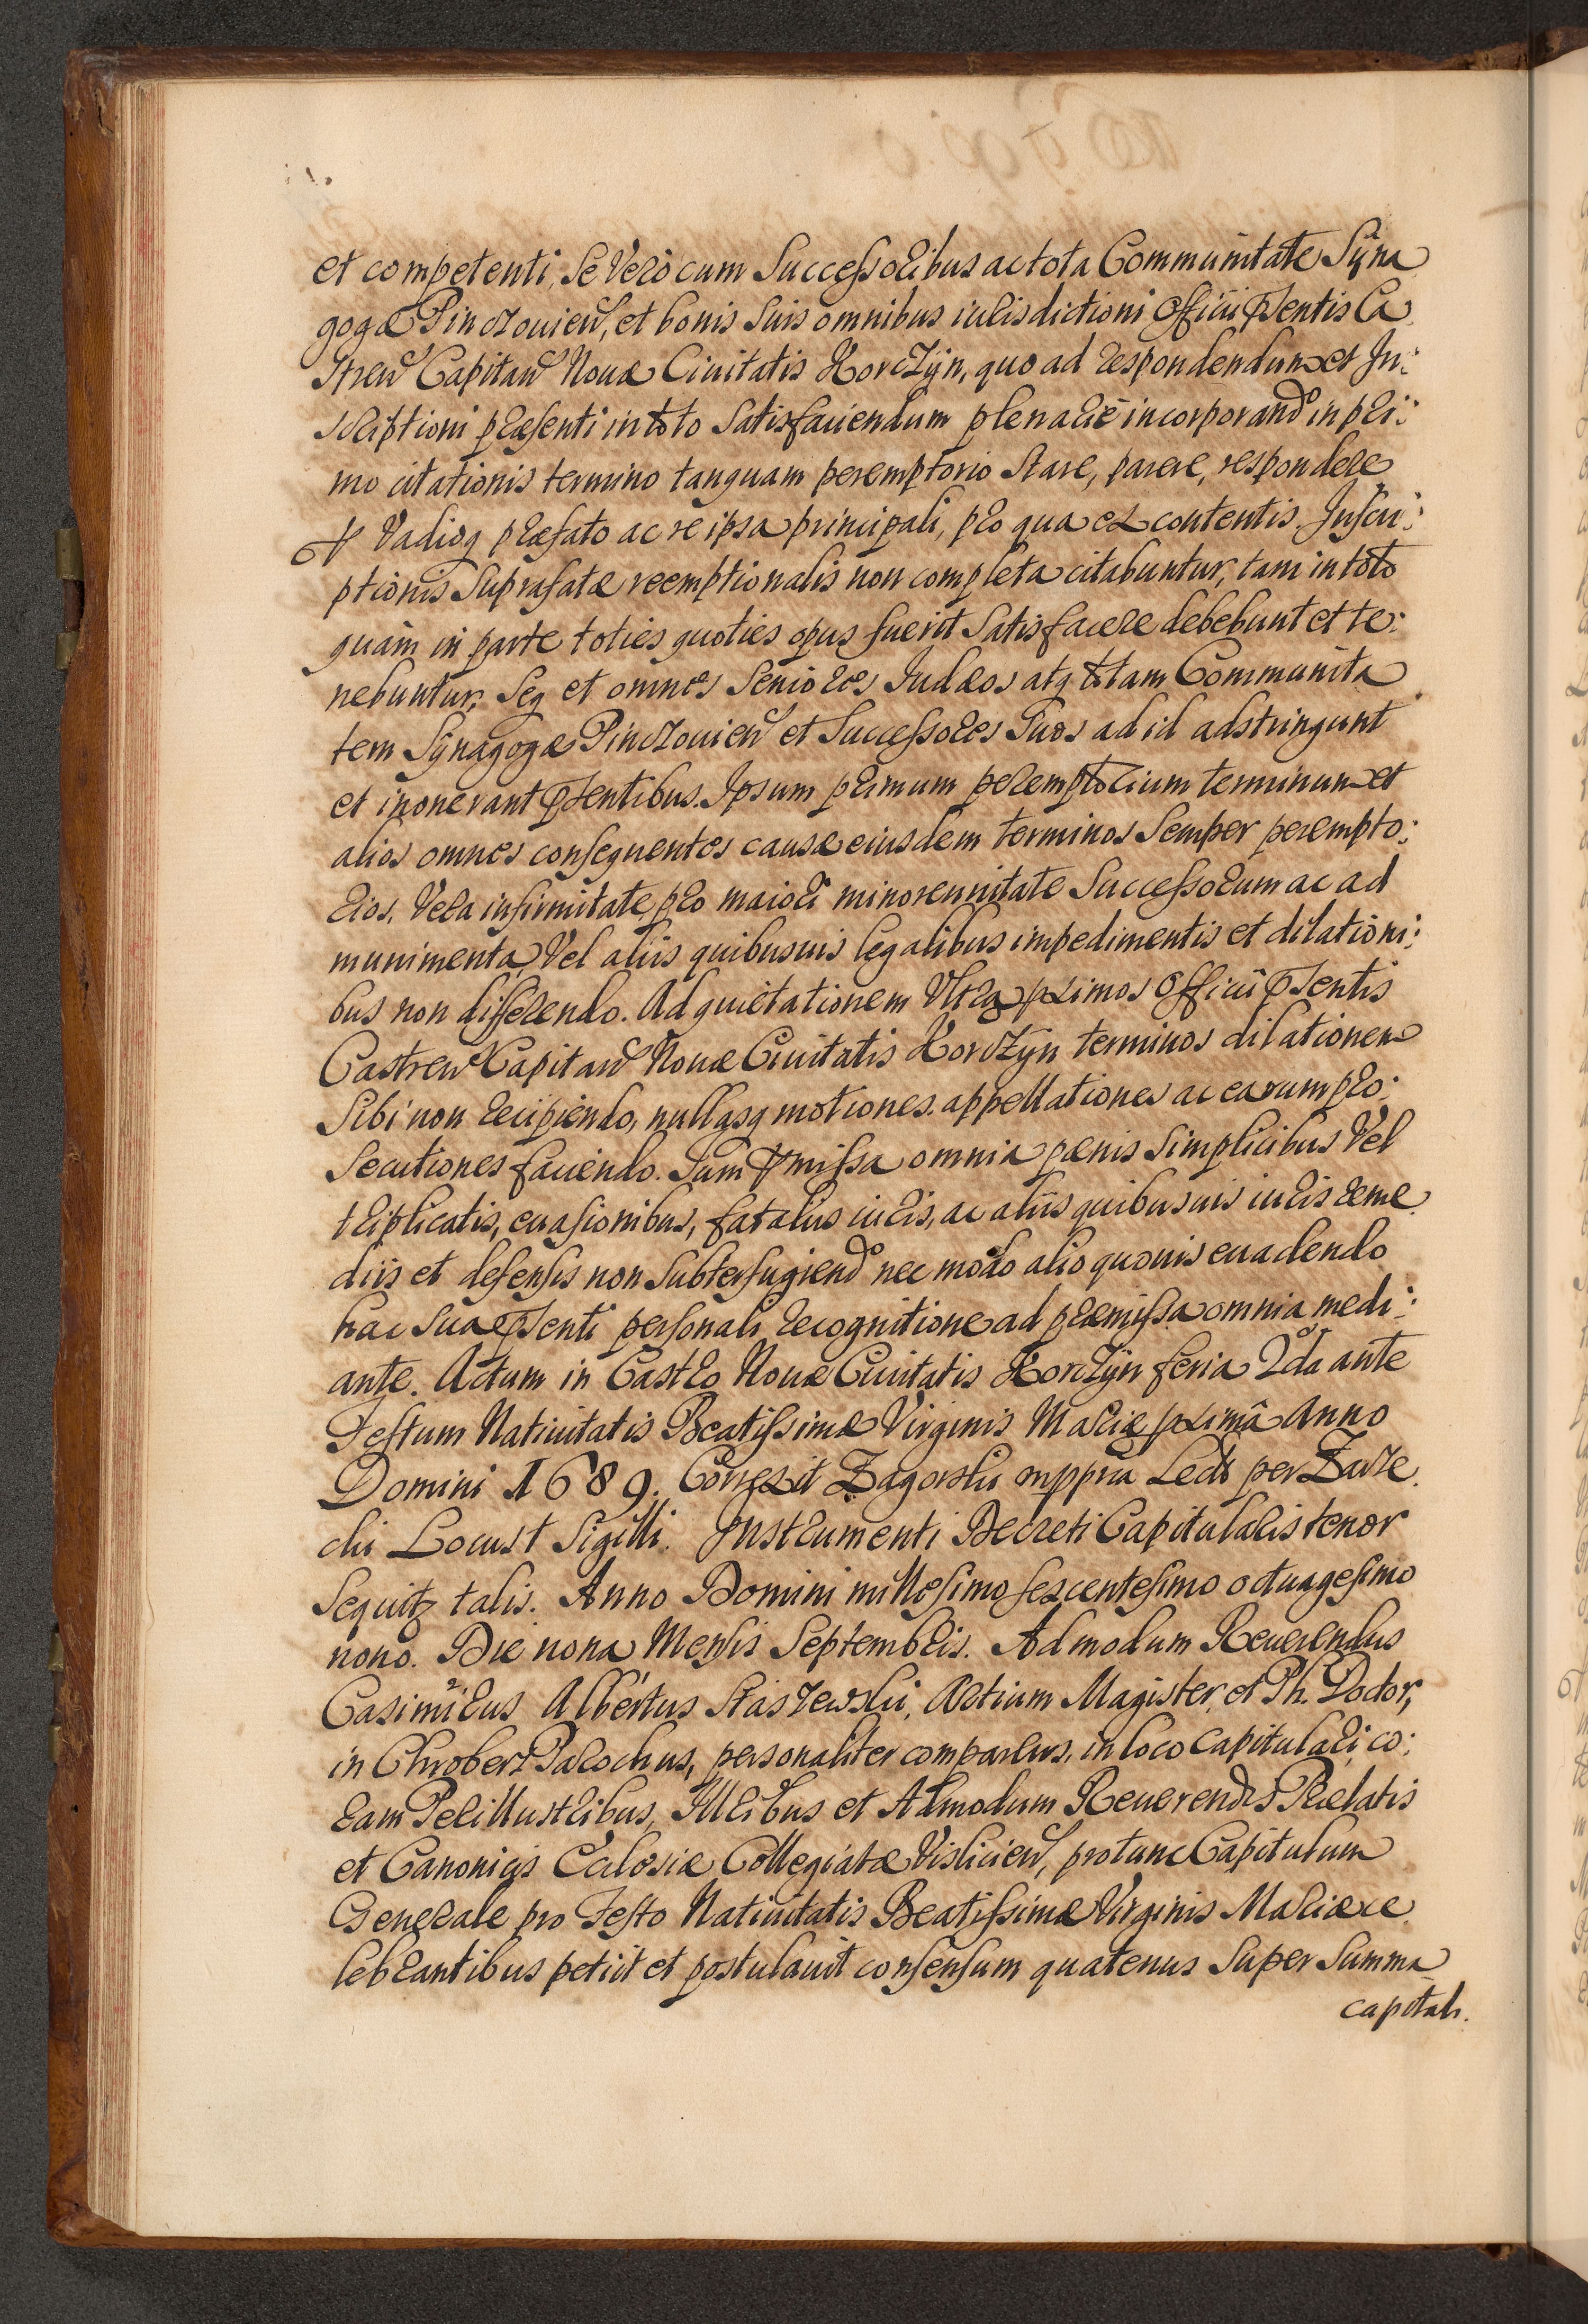 et competenti, Se Vero cum Successoribus ac tota Communitate Syna
gogæ Pinczouien, et bonis suis omnibus iurisdictioni Officii Psentis Ca
stren Capitan Nouæ Ciuitatis Korczyn, quo ad respondendum et In:
scriptioni præsenti in toto satisfaciendum plenarie incorporando in pri:
mo citationis termino tanquam peremptorio stare, parere, respondere
et Vadioq præfato ac re ipsa principali, pro qua ex contentis Inscri:
ptionis Suprafatæ reemptionalis non completa citabuntur, tam in toto
quam in parte toties quoties opus fuerit satisfacere debebunt et te:
nebuntur, Seq et omnes Seniores Iudæos atq totam Communita
tem Synagogæ Pinczouien et Successores Suos ad id adstringunt
et inonerant Psentibus. Ipsum primum peremptorium terminum et
alios omnes consequentes causæ eiusdem terminos Semper perempto:
rios, Vera infirmitate, pro maiori minoreunitate Successorum ac ad
munimenta, Vel aliis quibusuis legalibus impedimentis et dilationi:
bus non differendo. Ad quietationem Vltra primos Officii Psentis
Castren Capitan Nouæ Ciuitatis Korczyn terminos dilationem
Sibi non recipiendo, nullasq motiones. appellationes ac earum pro:
Secutiones faciendo. Iam Pmissa omnia pænis Simplicibus Vel
triplicatis, euasionibus, fatalus iuris, ac aliis quibusuis iuris reme
diis et defensis non Subterfugiendo nec modo alio quouis euadendo
hac Sua Psenti personali recognitione ad præmissa omnia medi:
ante. Actum in Castro Nouæ Ciuitatis Korczyn feria 2da ante
Festum Natiuitatis Beatissimæ Virginis Mariæ primâ Anno
Domini 1689. Correxit Zagorski mppria Lect per Zarze
cki Locus t Sigilli. Instrumenti Decreti Capitularis tenor
Sequitz talis. Anno Domini millesimo sexcentesimo octuagesimo
nono. Die nona Mensis Septembris. Admodum Reuerendus
Casimirus Albertus Staszewski, Artium Magister, et Ph. Doctor,
in Chroberz Parochus, personaliter comparens, in loco Capitulari co:
ram Perillustribus, Illribus et Admodum Reuerendis Prælatis
et Canonicis Ecclesiæ Collegiatæ Vislicien, protunc Capitulum
Generale pro Festo Natiuitatis Beatissimæ Virginis Mariæ ce
lebrantibus petiit et postulauit consensum quatenus Super Summa
capitali.